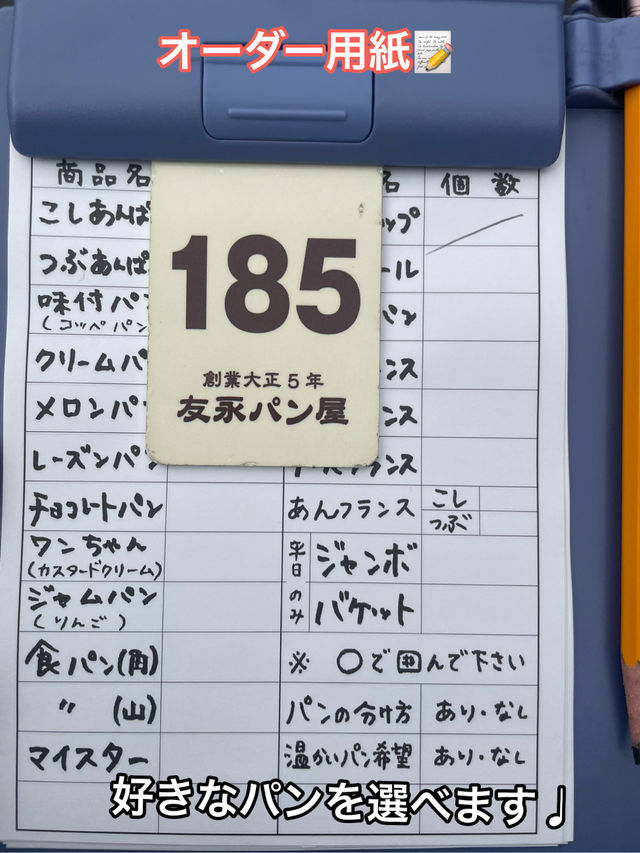 オーダー用紙📝
商品名
名
個数
こしあんぱ
ップ
つぶあんぱ
ール
味付パン
(コッペパン
パン
クリームパ
ンス
メロンパ
ンス
レーズンパン
フランス
チョコレートパン
あんフランス
こし
つぶ
ワンちゃん
(カスタードクリーム)
平日のみ
ジャンボ
ジャムパン
(りんご)
バゲット
食パン(角)
※ ○で囲んで下さい
〃 (山)
パンの分け方
あり・なし
マイスター
温かいパン希望
あり・なし
185
創業大正5年
友永パン屋
好きなパンを選べます♩